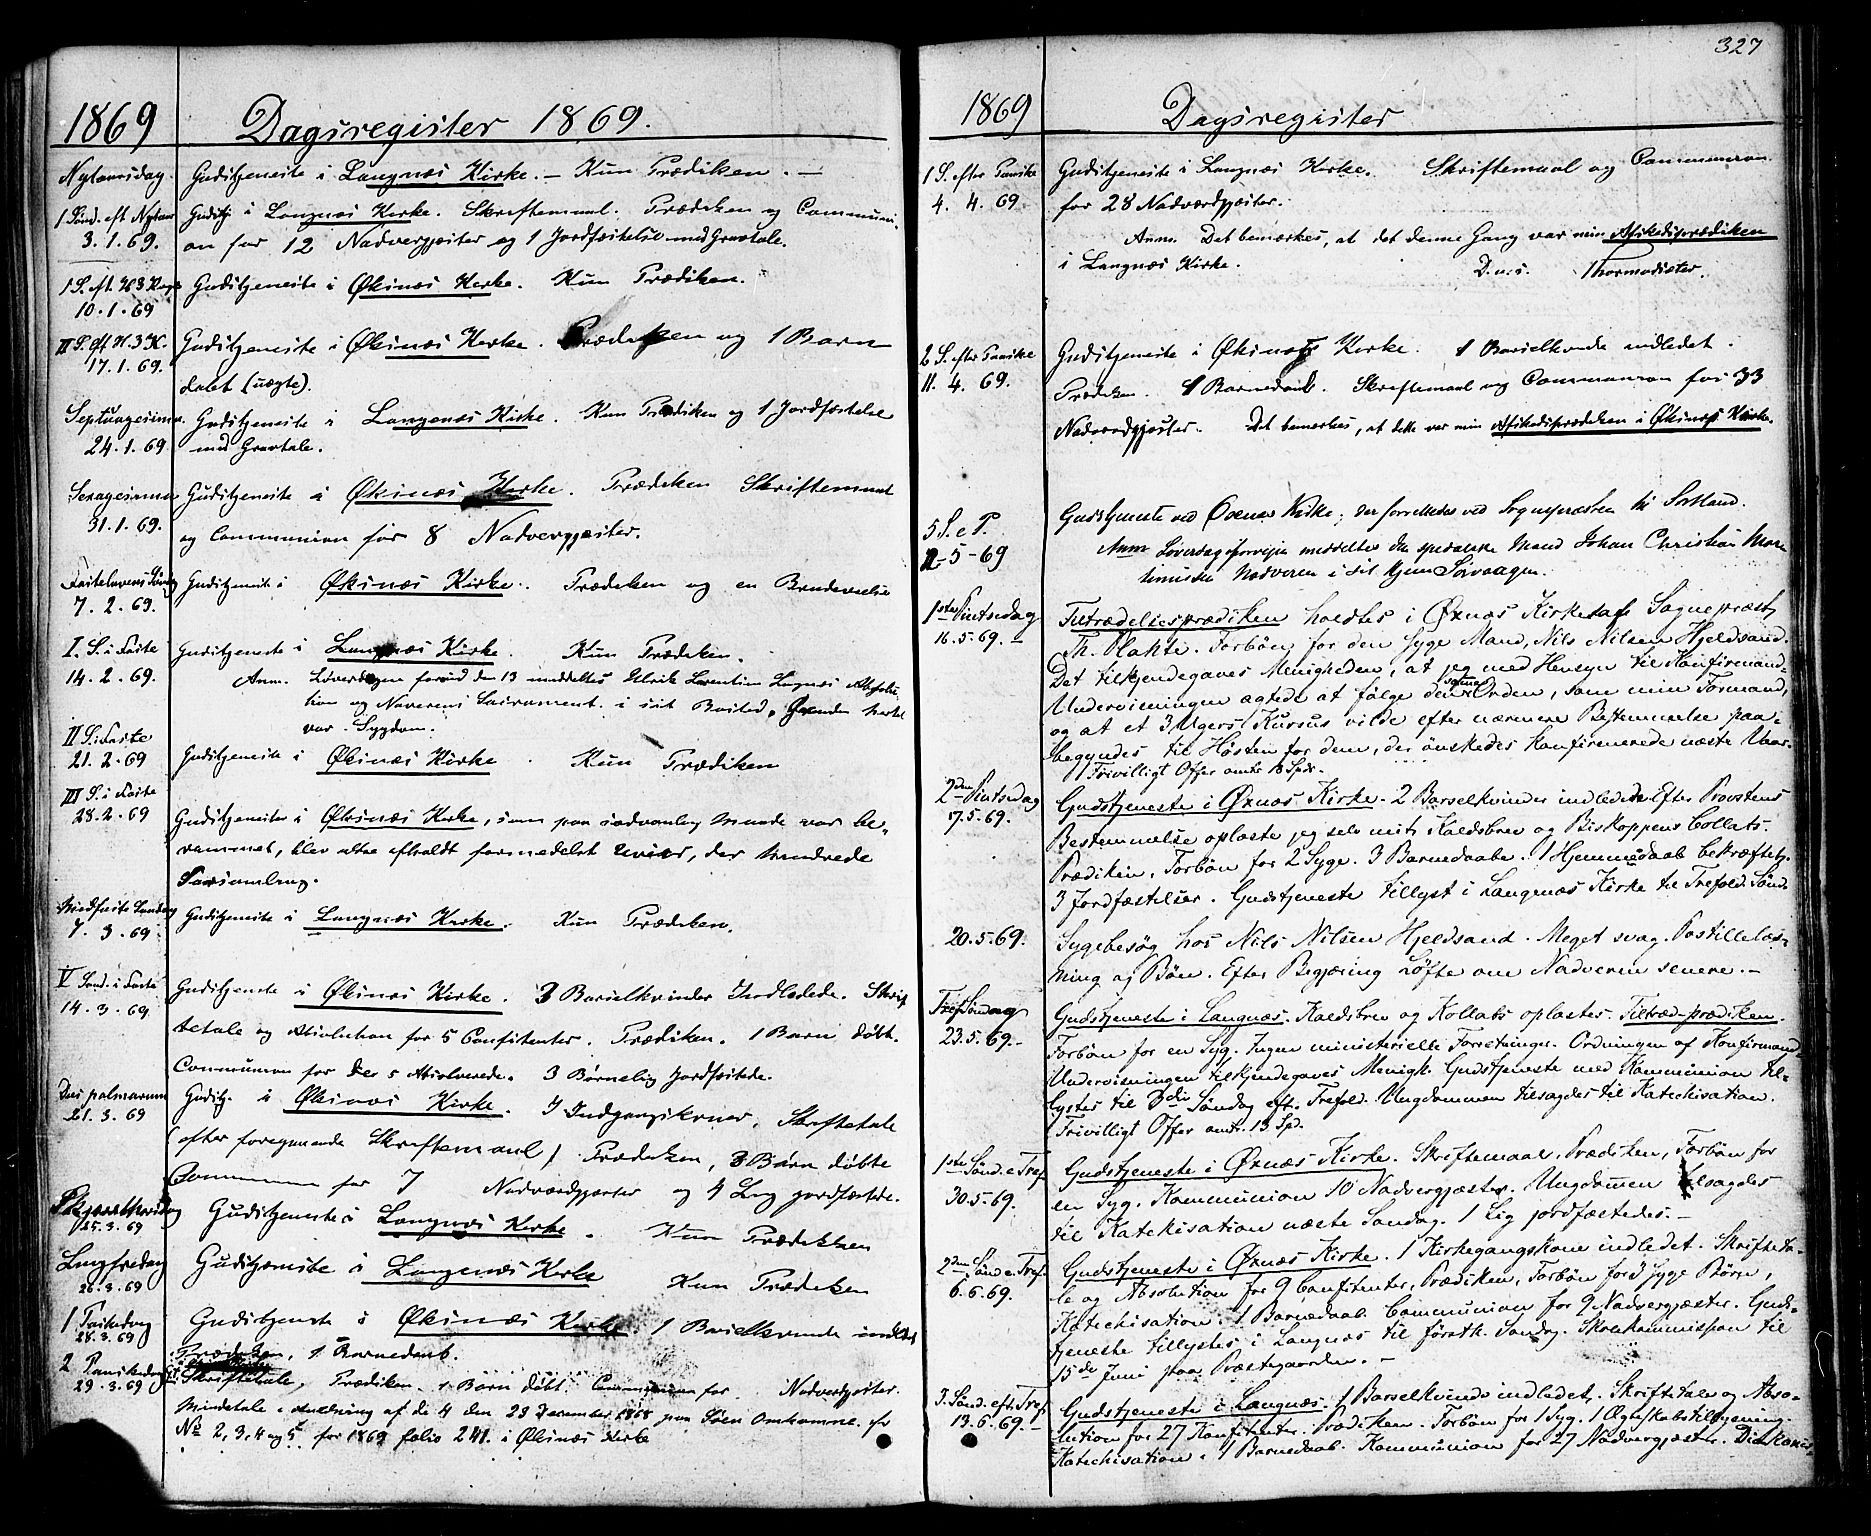 1869 Dagsregister 1869.
Nytaarsdag. Gudstjeneste i Langnæs Kirke. — Kun Prædiken. —
1 Sønd. eft Nytaar Gudstj i Langnæs Kirke. Skriftemaal. Prædiken og Communi-
3.1.69. on for 12 Nadvergjæster og 1 Jordfæstelse med Gravtale.
1 S. eft. H 3 Kong Gudstjeneste i Øksnæs Kirke. Kun Prædiken.
10.1.69
II S. eft H. 3 K. Gudstjeneste i Øksnæs Kirke. Prædiken og 1 Barn
17.1.69. døbt (uægte).
Septuagesima. Gudstjeneste i Langenæs Kirke. Kun Prædiken og 1 Jordfæstelse
24.1.69 med Gravtale.
Sexagesima Gudstjeneste i Øksnæs Kirke. Prædiken Skriftemaal
31.1.69. og Communion for 8 Nadvergjæster.
Fastelavens Søndag Gudstjeneste i Øksnæs Kirke. Prædiken og en Brudevielse
7.2.69.
I. S. i Faste Gudstjeneste i Langnæs Kirke. Kun Prædiken.
14.2.69. Anm. Løverdagen forud den 13 meddeltes Ulrik Lorentsen Langnæs Absolu-
tion og Naverens Sacrament i sit Bosted. Grunden hertil
var Sygdom.
II S. i Faste
21.2.69 Gudstjeneste i Øksnæs Kirke. Kun Prædiken
III S. i Faste
28.2.69 Gudstjenesten i Øksnæs Kirke, som paa sædvanlig Maade var be-
rammet, blev ikke afholdt formedelst Uveir, der hindrede
Forsamling.
Midfaste Søndag Gudstjeneste i Langnæs Kirke. Kun Prædiken.
7.3.69
V Sønd. i Faste Gudstjeneste i Øksnæs Kirke. 3 Barselkvinder Indledede. Skrif
14.3.69 tetale og Absolution for 5 Confitenter. Prædiken. 1 Barn døbt.
Communion for de 5 Absolverede. 3 Børnelig Jordfæstede.
Dns palmarum Gudstj. i Øksnæs Kirke. 3 Indgangskoner. Skriftetale
21.3.69 (efter foregaaende Skriftemaal) Prædiken, 3 Børn døbte
Communion for 7 Nadverdgjæster og 4 Lig jordfæstede.
Skjærthorsdag Gudstjeneste i Langnæs Kirke. Kun Prædiken
25.3.69
Langfredag Gudstjeneste i Langenæs Kirke Kun Prædiken
26.3.69
1 Paaskedag Gudstjeneste i Øksnæs Kirke. 1 Barselkvinde indledet
28.3.69 Prædiken, 1 Barnedaab.
2 Paaskedag
29.3.69 Skriftetale, Prædiken. 1 Barn døbt. Communion for Nadverdgjæster.
Mindetale i Anledning af de 4 den 23 December 1868 paa Søen Omkomne. cfr
No 2, 3, 4 og 5 for 1869 folio 241. i Øksnæs Kirke
327
1869 Dagsregister
1 S. efter Paaske Gudstjeneste i Langnæs Kirke. Skriftemaal og Communion
4.4.69 for 28 Nadverdgjæster.
Anm. Det bemærkes, at det denne Gang var min Afskedsprædiken
i Langnæs Kirke. D.u.s. Thormodsæter.
2 S. efter Paaske Gudstjeneste i Øksnæs Kirke. 1 Barselkvinde indledet.
11.4.69. Prædiken. 1 Barnedaab. Skriftemaal og Communion for 33
Nadverdgjæster. Det bemærkes, at dette var min Afskedsprædiken i Øksnæs Kirke.
5 S. e P. Gudstjeneste ved Øxnes Kirke; der forrettedes ved Sognepræsten til Sortland.
2-5-69 Anm Løverdag forveien meddeltes den spedalske Mand Johan Christian Mar-
thinussen Nadveren i sit Hjem Sørvaagen.
1ste Pintsedag Tiltrædelsesprædiken holdtes i Øxnæs Kirke af Sognepræst
16.5.69. — Th. Plahte. Forbøn for den syge Mand, Nils Nilsen Hjeldsand.
Det tilkjendegaves Menigheden, at jeg med Hensyn til Konfirmand-
Undervisningen agtede at følge den samme Orden, som min Formand,
og at et 3 Ugers Kursus vilde efter nærmere Bestemmelse paa-
begyndes til Høsten for dem, der ønskedes konfirmerede næste Vaar.
Frivilligt Offer omtr. 18 Spdr.
2den Pintsedag Gudstjeneste i Øxnæs Kirke. 2 Barselkvinder indledede. Efter Provstens
17.5.69. Bestemmelse oplæste jeg selv mit Kaldsbrev og Biskoppens Collats.
Prædiken. Forbøn for 2 Syge. 3 Barnedaabe. 1 Hjemmedaab bekræftet.
3 Jordfæstelser. Gudstjeneste tillyst i Langenæs Kirke til Trefold. Sønd.
20.5.69. Sygebesøg hos Nils Nilsen Hjeldsand. Meget svag. Postillelæs-
ning og Bøn. Efter Begjæring Løfte om Nadveren senere. —
Tref Søndag Gudstjeneste i Langnæs. Kaldsbrev og Kollats oplæstes. Tiltræd. prædiken.
23.5.69. — Forbøn for en Syg. Ingen ministerielle Forretninger. Ordningen af Konfirmand-
Undervisningen tilkjendegaves Menigh. Gudstjeneste med Kommunion til-
lystes til 3die Søndag eft. Trefold. Ungdommen tilsagdes til Katechisation.
Frivilligt Offer omtr. 13 Spd.
1ste Sønd. e Tref. Gudstjeneste i Øxnæs Kirke. Skriftemaal, Prædiken, Forbøn for
30.5.69. en Syg. Kommunion 10 Nadvergjæster. Ungdommen tilsagdes
til Katekisation næste Søndag. 1 Lig jordfæstedes. —
2den Sønd e. Tref. Gudstjeneste i Øxnæs Kirke. 1 Kirkegangskone indledet. Skrifteta-
6.6.69. le og Absolution for 9 Confitenter, Prædiken, Forbøn for 3 syge Børn,
Katechisation. 1 Barnedaab. Communion for 9 Nadvergjæster. Guds-
tjeneste tillystes i Langnæs til førstk. Søndag. Skolekommission til
15de Juni paa Præstegaarden. —
3 Sønd. eft. Tref. Gudstjeneste i Langnæs. 1 Barselkvinde indledet. Skriftetale og Abso-
13.6.69. — lution for 27 Konfitenter. Prædiken. Forbøn for 1 Syg. 1 Ægteskabstillysning.
Katechisation. 1 Barnedaab. Kommunion for 27 Nadvergjæster.